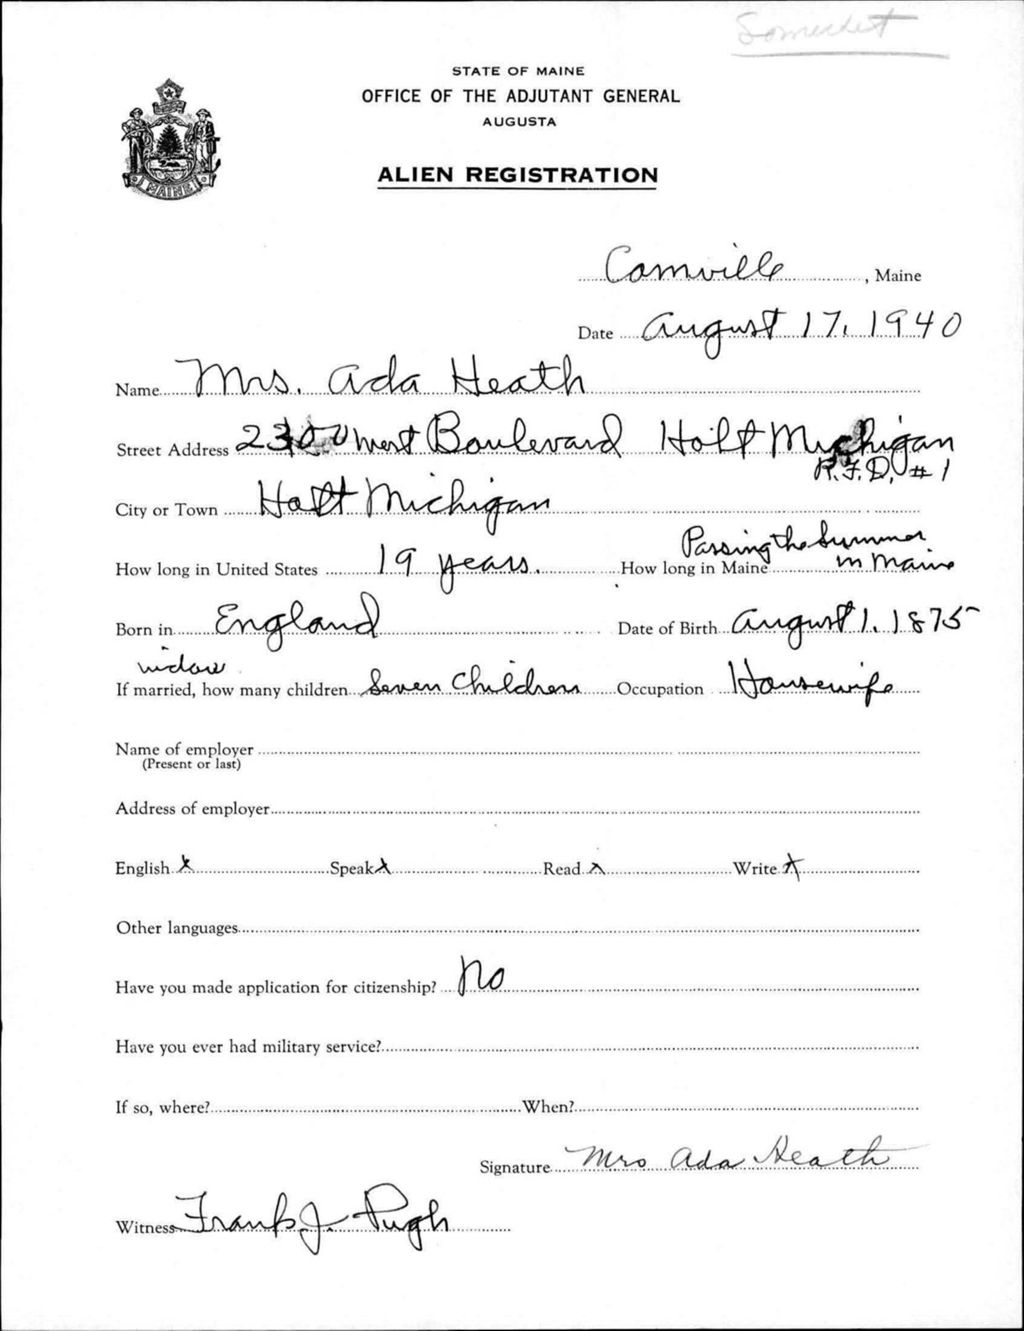 Somerset
STATE OF MAINE
OFFICE OF THE ADJUTANT GENERAL
AUGUSTA
ALIEN REGISTRATION
MAINE
Canville, Maine
Date August 17, 1940
Name Mrs. Ada Heath
Street Address 2300 West Boulevard Holt Michigan
R.F.D. #1
City or Town Holt Michigan
Passing the Summer
How long in United States 19 years. How long in Maine in Maine
Born in England Date of Birth August 1, 1875
widow
If married, how many children Seven Children Occupation Housewife
Name of employer
(Present or last)
Address of employer
English X Speak X Read X Write X
Other languages
Have you made application for citizenship? No
Have you ever had military service?
If so, where? When?
Signature Mrs Ada Heath
Witness Frank J. Pugh